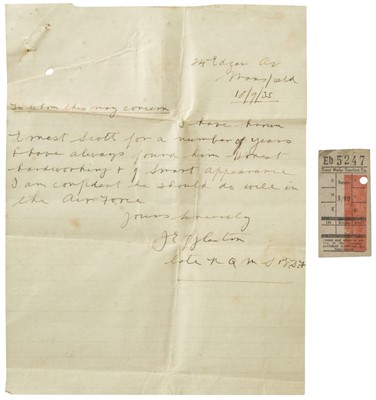 Edgar Av
Mansfield
18/9/35
To whom this may concern
I have known
Ernest Scott for a number of years
& have always found him honest
hardworking & of smart appearance
I am confident he should do well in
the Air Force
Yours Sincerely
late R Q M S
Eb 5247